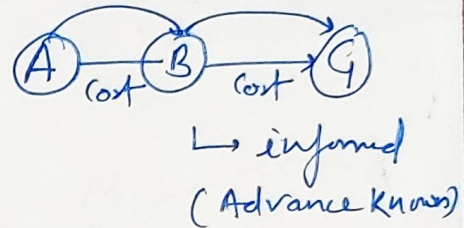 A B G
Cost Cost
↳ informed
(Advance Known)